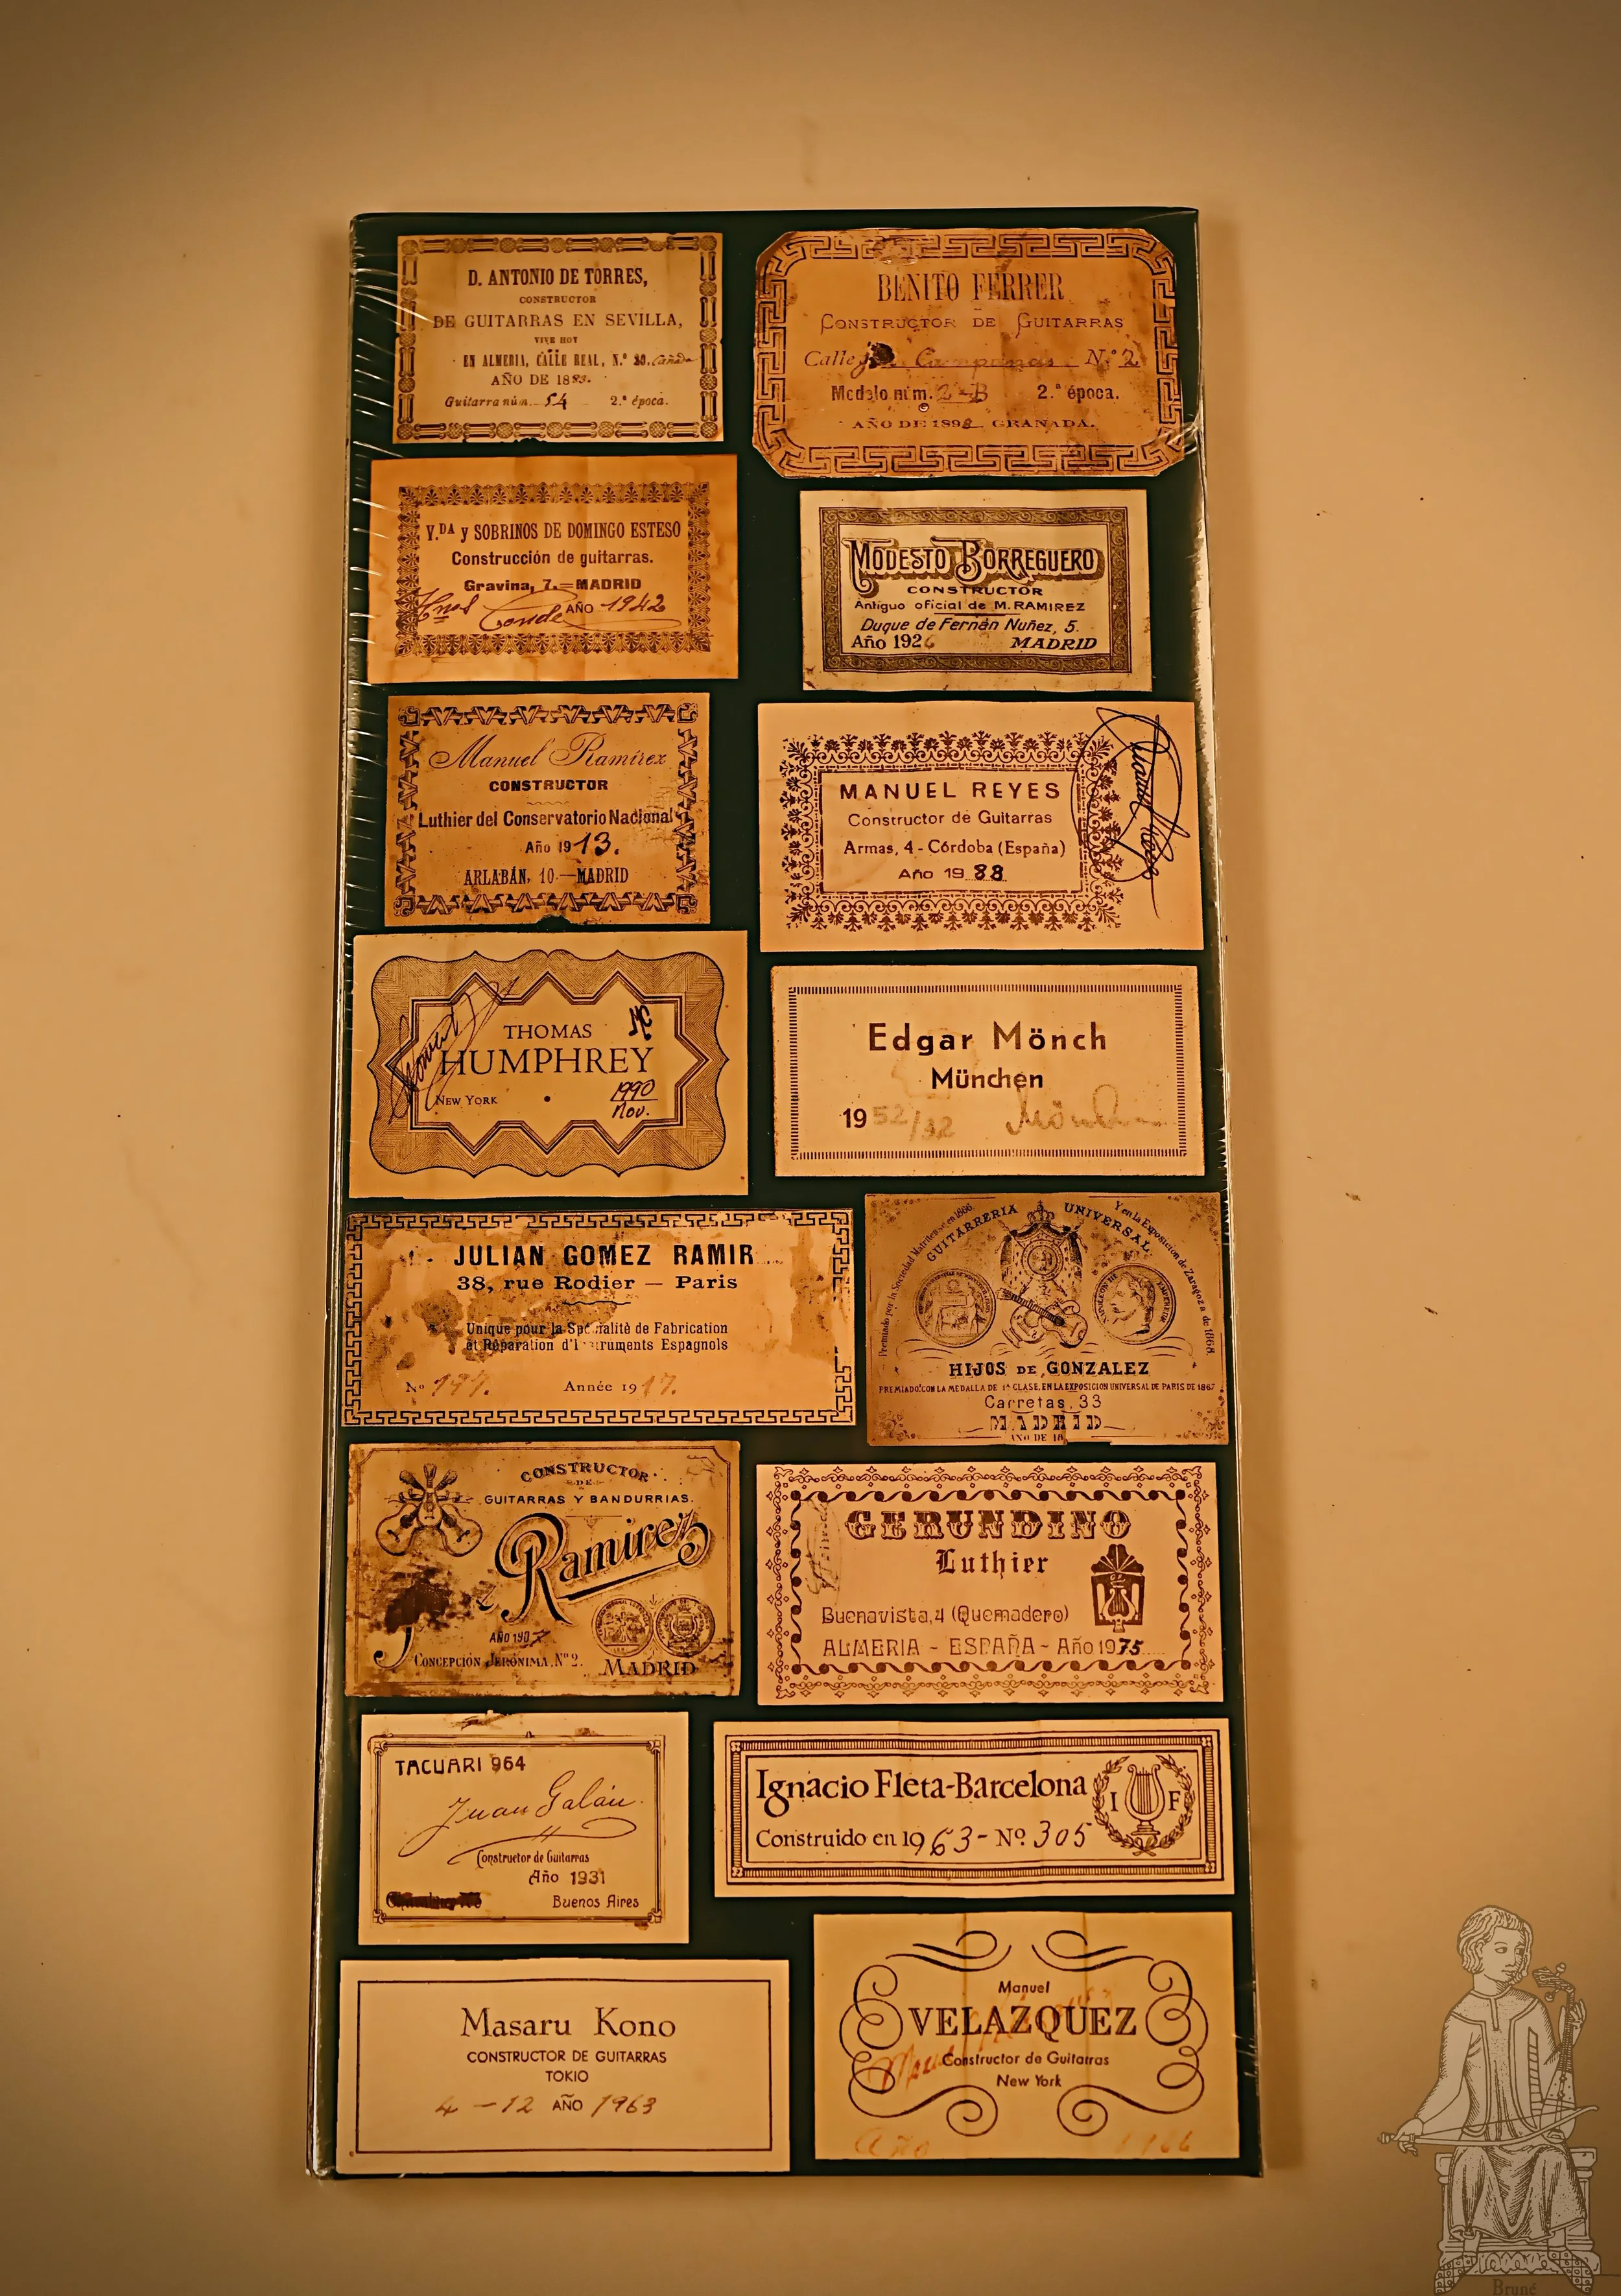 D. ANTONIO DE TORRES,
CONSTRUCTOR
DE GUITARRAS EN SEVILLA,
VIVE HOY
EN ALMERIA, CALLE REAL, N.º 80. Cañada
AÑO DE 1883.
Guitarra núm. 54 2.ª época.
BENITO FERRER
CONSTRUCTOR DE GUITARRAS
Calle Campanas N.º 2
Modelo núm. 2.ª época.
AÑO DE 1898 GRANADA.
V.DA y SOBRINOS DE DOMINGO ESTESO
Construcción de guitarras.
Gravina, 7.—MADRID
Hnos Conde AÑO 1942
MODESTO BORREGUERO
CONSTRUCTOR
Antiguo oficial de M. RAMIREZ
Duque de Fernán Nuñez, 5.
Año 1926 MADRID
Manuel Ramírez
CONSTRUCTOR
Luthier del Conservatorio Nacional
Año 1913.
ARLABÁN, 10.—MADRID
MANUEL REYES
Constructor de Guitarras
Armas, 4 - Córdoba (España)
Año 1988
THOMAS
HUMPHREY
NEW YORK 1990
Nov.
Edgar Mönch
München
1952/32 Mönch
JULIAN GOMEZ RAMIR
38, rue Rodier — Paris
Unique pour la Spécialité de Fabrication
et Réparation d'Instruments Espagnols
No 197. Année 1917.
Premiado por la Sociedad en 1866.
GUITARRERIA UNIVERSAL
Y en la Exposicion de Zaragoza de 1868.
HIJOS DE GONZALEZ
PREMIADO CON LA MEDALLA DE 1ª CLASE, EN LA EXPOSICION UNIVERSAL DE PARIS DE 1867
Carretas, 33
MADRID
AÑO DE 18
CONSTRUCTOR
DE
GUITARRAS Y BANDURRIAS.
J Ramirez
AÑO 1907
CONCEPCIÓN JERÓNIMA, Nº 2. MADRID
GERUNDINO
Luthier
Buenavista, 4 (Quemadero)
ALMERIA - ESPAÑA - Año 1975
TACUARI 964
Juan Galán.
Constructor de Guitarras
Año 1931
Buenos Aires
Ignacio Fleta-Barcelona
Construido en 1963 - Nº 305
I F
Masaru Kono
CONSTRUCTOR DE GUITARRAS
TOKIO
4 - 12 AÑO 1963
Manuel
VELAZQUEZ
Constructor de Guitarras
New York
Año 1966
Bruné